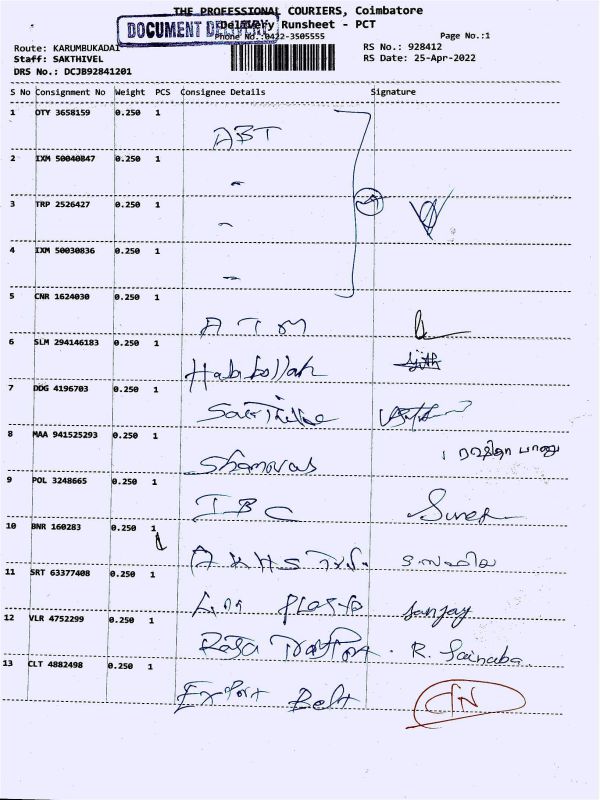 THE PROFESSIONAL COURIERS, Coimbatore
DOCUMENT DELIVERY
Delivery Runsheet - PCT
Phone No.:0422-3505555
Page No.:1
Route: KARUMBUKADAI
RS No.: 928412
Staff: SAKTHIVEL
RS Date: 25-Apr-2022
DRS No.: DCJB92841201
S No Consignment No Weight PCS Consignee Details Signature
1 OTY 3658159 0.250 1
ABT
2 IXM 50040847 0.250 1
3 TRP 2526427 0.250 1
4 IXM 50030836 0.250 1
5 CNR 1624030 0.250 1
ATM
6 SLM 294146183 0.250 1
Habibollah
7 DDG 4196703 0.250 1
8 MAA 941525293 0.250 1
Shanavas
9 POL 3248665 0.250 1
IBC
10 BNR 160283 0.250 1
11 SRT 63377408 0.250 1
Sanjay
12 VLR 4752299 0.250 1
R. Sainaba
13 CLT 4882498 0.250 1
Export Belt